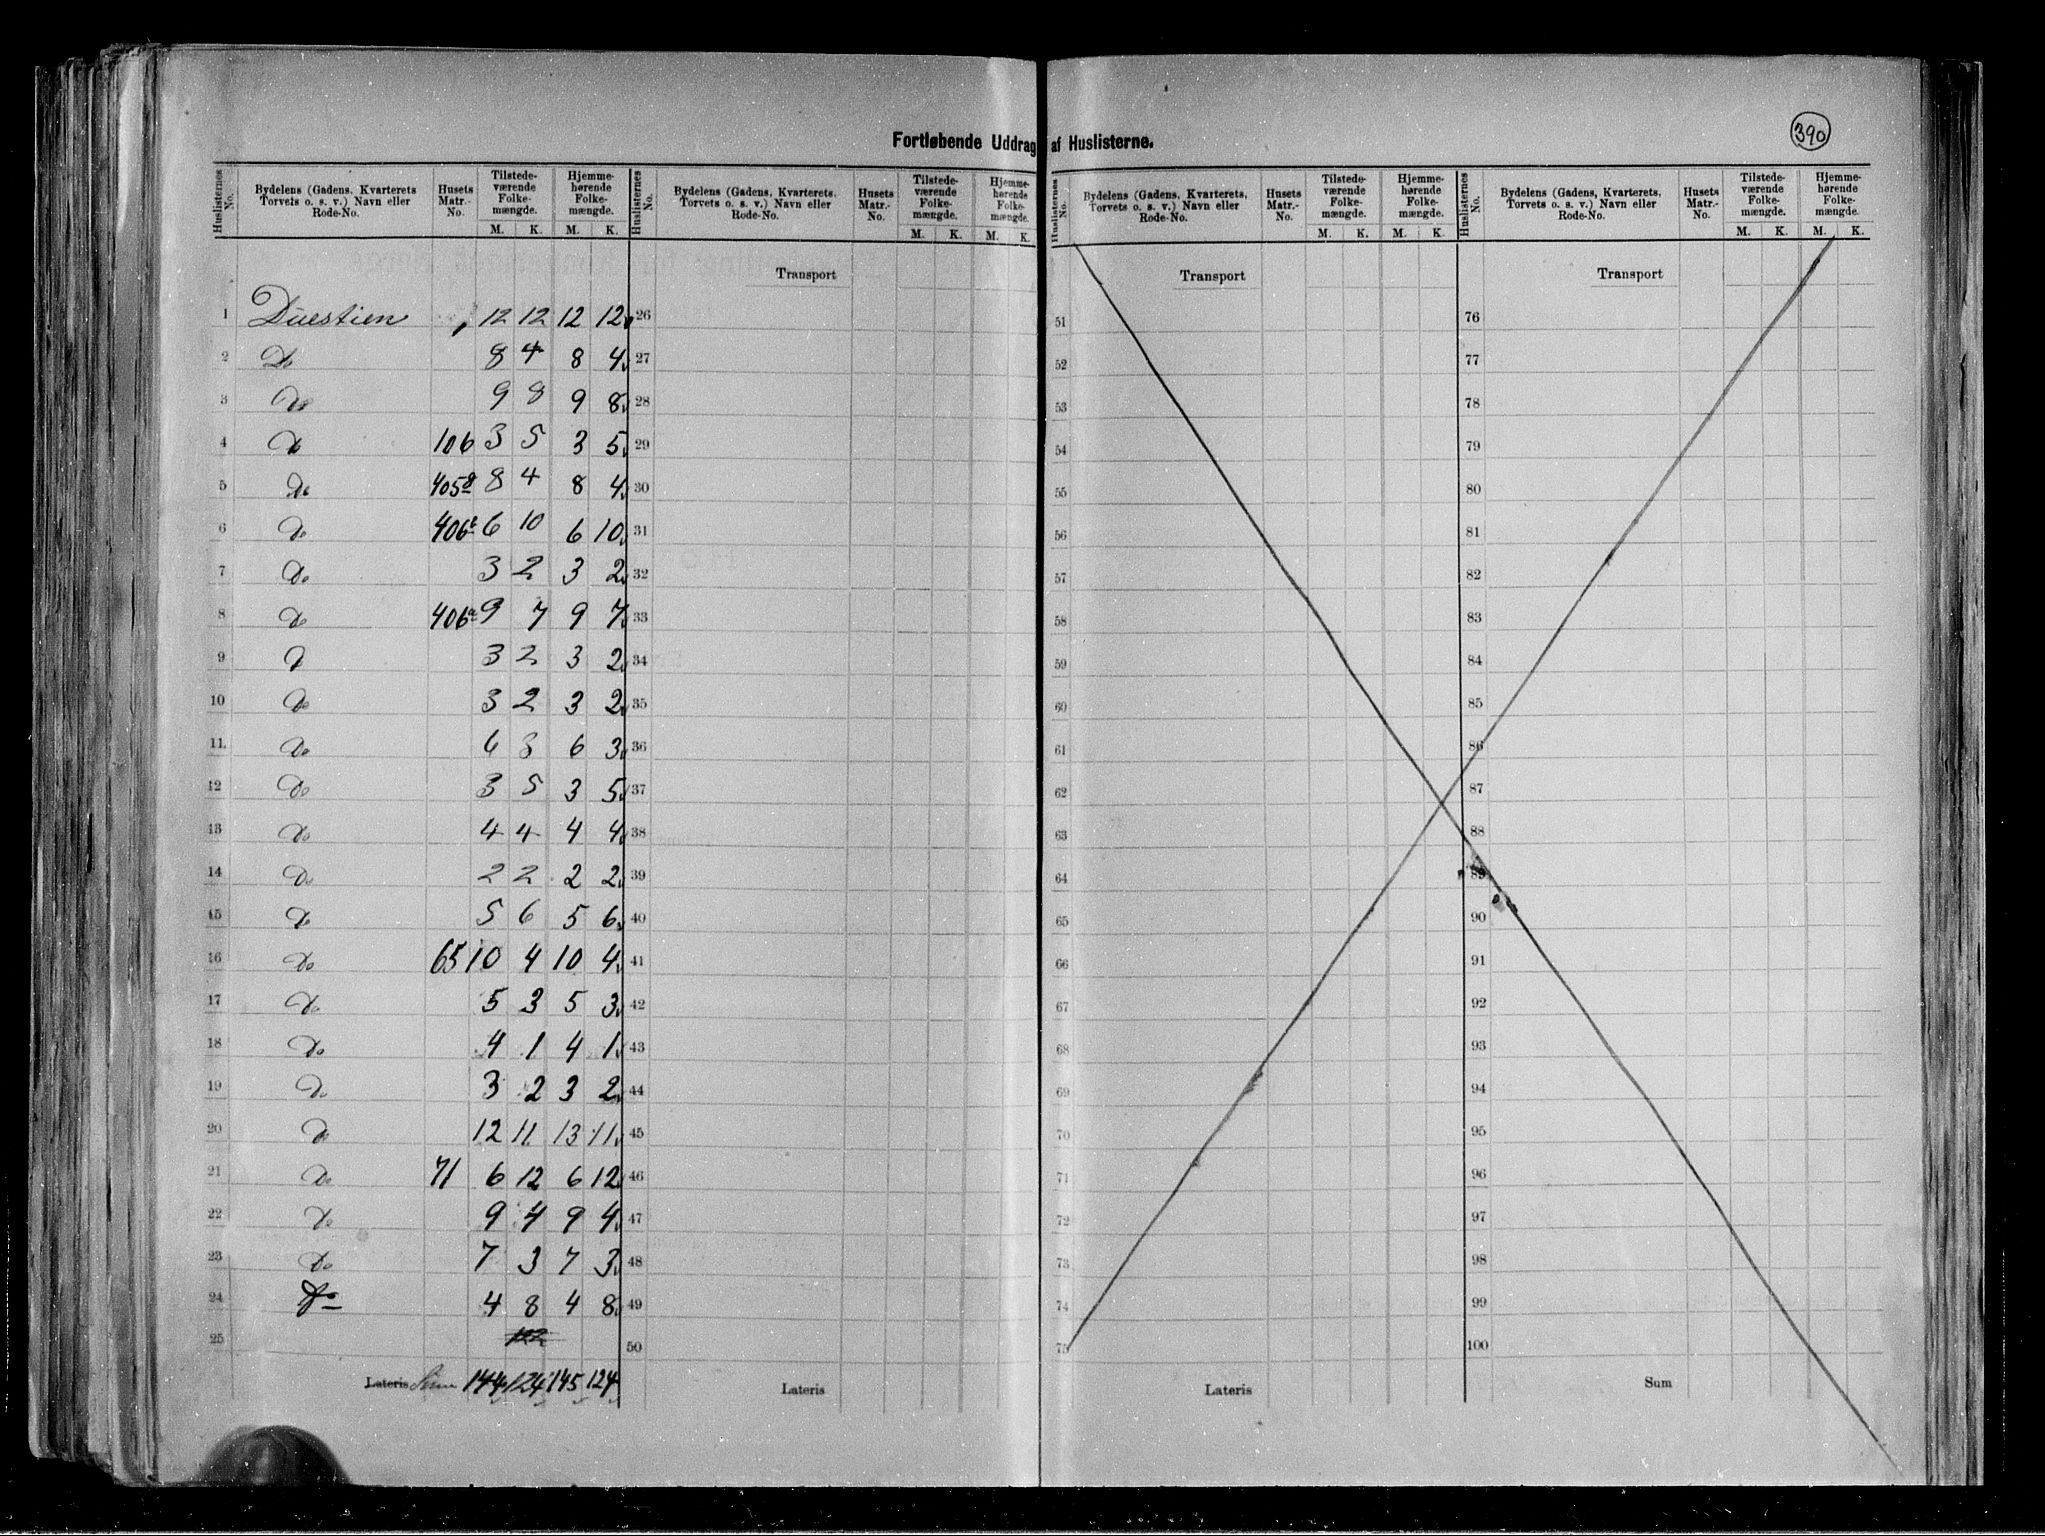 390
Fortløbende Uddrag af Huslisterne.
Huslisternes No. Bydelens (Gadens, Kvarterets Torvets o. s. v.) Navn eller Rode-No. Husets Matr.-No. Tilstede-værende Folke-mængde. Hjemme-hørende Folke-mængde.
M. K. M. K.
Huslisternes No. Bydelens (Gadens, Kvarterets, Torvets o. s. v.) Navn eller Rode-No. Husets Matr.-No. Tilstede-værende Folke-mængde. Hjemme-hørende Folke-mængde.
M. K. M. K.
Huslisternes No. Bydelens (Gadens, Kvarterets, Torvets o. s. v.) Navn eller Rode-No. Husets Matr.-No. Tilstede-værende Folke-mængde. Hjemme-hørende Folke-mængde.
M. K. M. K.
Huslisternes No. Bydelens (Gadens, Kvarterets, Torvets o. s. v.) Navn eller Rode-No. Husets Matr.-No. Tilstede-værende Folke-mængde. Hjemme-hørende Folke-mængde.
M. K. M. K.
Transport Transport Transport
1 Duestien 12 12 12 12 26 51 76
2 Do 8 4 8 4 27 52 77
3 Do 9 8 9 8 28 53 78
4 Do 106 3 5 3 5 29 54 79
5 Do 405 8 4 8 4 30 55 80
6 Do 406 6 10 6 10 31 56 81
7 Do 3 2 3 2 32 57 82
8 Do 406a 9 7 9 7 33 58 83
9 Do 3 2 3 2 34 59 84
10 Do 3 2 3 2 35 60 85
11. Do 6 3 6 3 36 61 86
12 Do 3 5 3 5 37 62 87
13 Do 4 4 4 4 38 63 88
14 Do 2 2 2 2 39 64 89
15 Do 5 6 5 6 40 65 90
16 Do 65 10 4 10 4 41 66 91
17 Do 5 3 5 3 42 67 92
18 Do 4 1 4 1 43 68 93
19 Do 3 2 3 2 44 69 94
20 Do 12 11 13 11 45 70 95
21 Do 71 6 12 6 12 46 71 96
22 Do 9 4 9 4 47 72 97
23 Do 7 3 7 3 48 73 98
24 Do 4 8 4 8 49 74 99
25 50 75 100
Lateris Sum 144 124 145 124 Lateris Lateris Sum